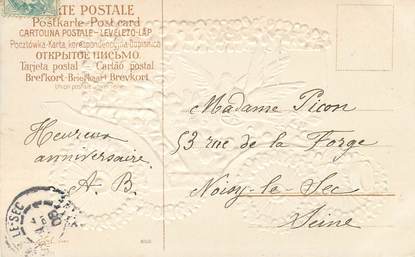 CARTE POSTALE
Postkarte-Post card
CARTOLINA POSTALE-LEVELEZŐ-LAP
Pocztówka-Karta korespondencyjna-Dopisnice
ОТКРЫТОЕ ПИСЬМО
Tarjeta postal-Cartão postal
Brefkort-Briefkaart-Brevkort
Madame Picon
53 rue de la Forge
Noisy-le-Sec
Seine
Heureux
anniversaire.
A. B.
LE-SEC